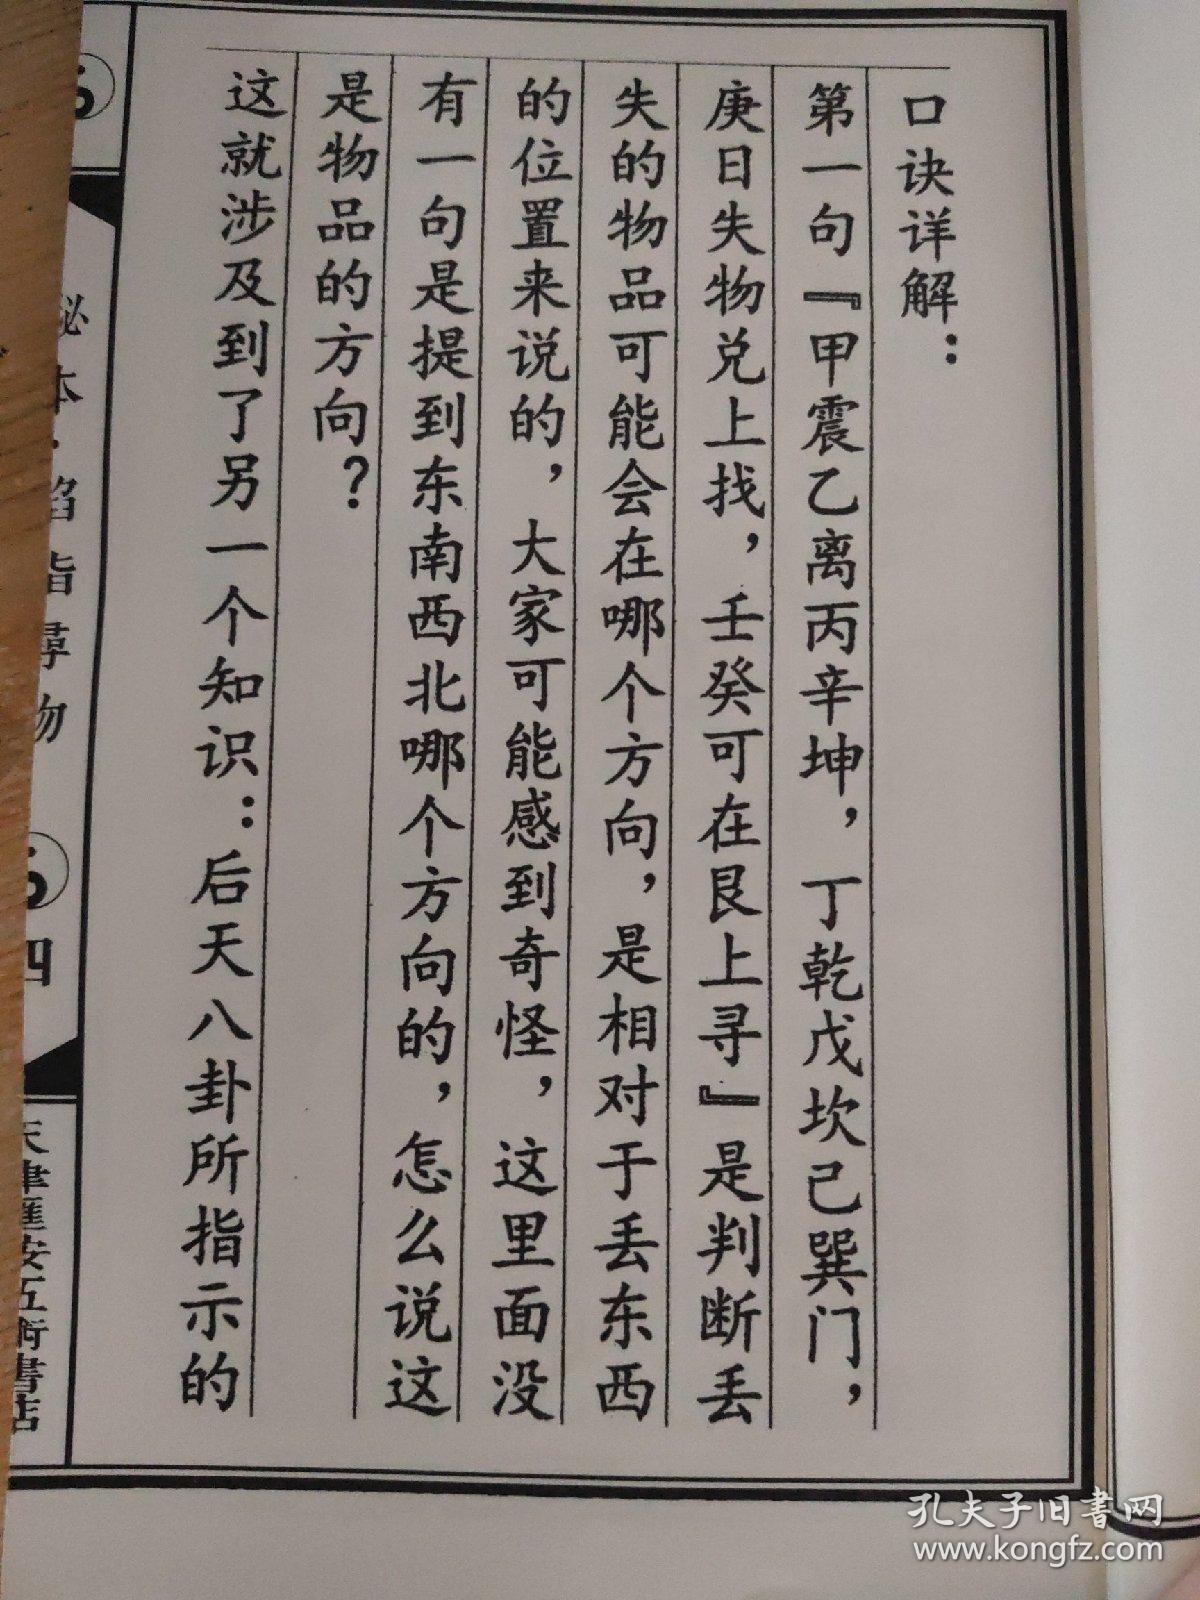 口诀详解：
第一句『甲震乙离丙辛坤，丁乾戊坎己巽门，
庚日失物兑上找，壬癸可在艮上寻』是判断丢
失的物品可能会在哪个方向，是相对于丢东西
的位置来说的，大家可能感到奇怪，这里面没
有一句是提到东南西北哪个方向的，怎么说这
是物品的方向？
这就涉及到了另一个知识：后天八卦所指示的
秘本·掐指尋物
四
天津匯安五術書店
孔夫子旧书网
www.kongfz.com